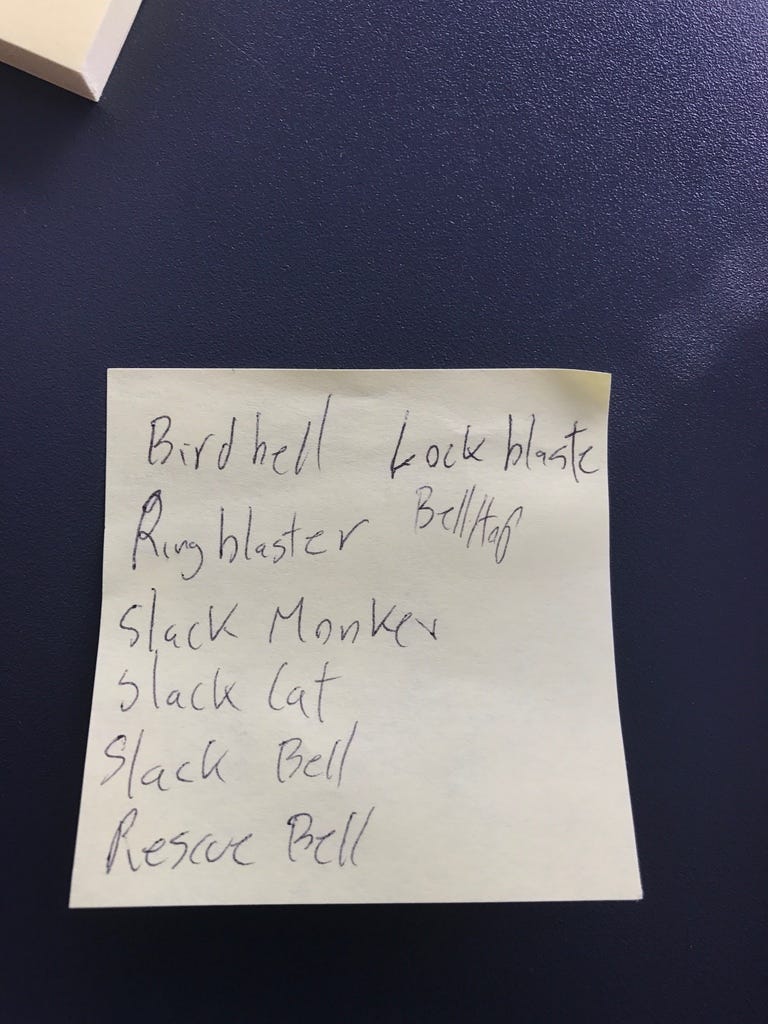 Birdbell Lock blaste
Ringblaster
Slack Monker
Slack Cat
Slack Bell
Rescue Bell